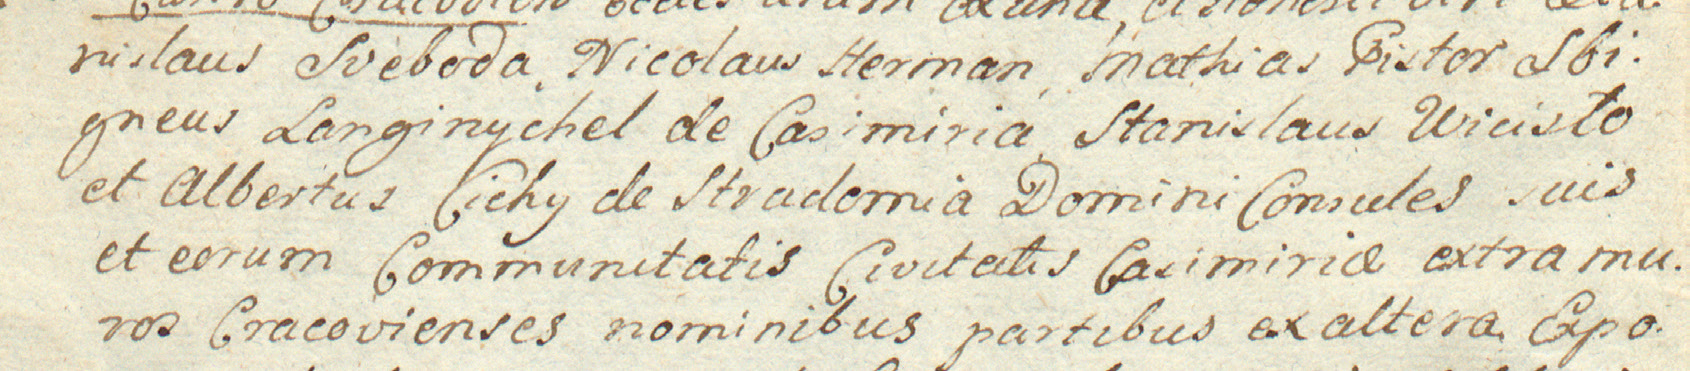 nislaus Sveboda, Nicolaus Herman, Mathias Pistor Sbi.
gneus Langinychel de Casimiria, Stanislaus Wicisto
et Albertus Cichy de Stradomia Domini Consules suis
et eorum Communitatis Civitatis Casimiriæ extra mu.
ros Cracovienses nominibus partibus ex altera. Expo